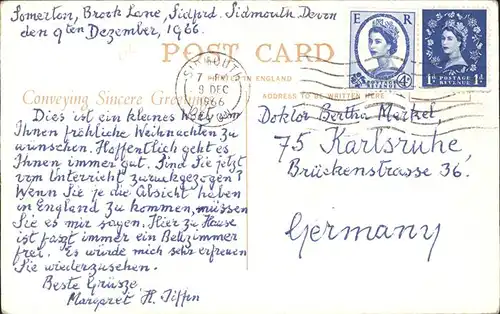 Somerton, Brook Lane, Sidford. Sidmouth, Devon
den 9ten Dezember, 1966.
POST CARD
PRINTED IN ENGLAND
ADDRESS TO BE WRITTEN HERE
Conveying Sincere Greetings
SIDMOUTH
7 PM
9 DEC
1966
DEVON
E R
POSTAGE REVENUE
4D
1D POSTAGE REVENUE 1D
Dies ist ein kleines Wort um
Ihnen fröhliche Weihnachten zu
wünschen. Hoffentlich geht es
Ihnen immer gut. Sind Sie jetzt
vom Unterricht zurückgezogen?
Wenn Sie je die Absicht haben
in England zu kommen, müssen
Sie es mir sagen. Hier zu Hause
ist fast immer ein Bettzimmer
frei. Es würde mich sehr erfreuen
Sie wiederzusehen.
Beste Grüsze,
Margaret H. Tiffin
Doktor Bertha Merkel,
75 Karlsruhe,
Brückenstrasse 36.
Germany